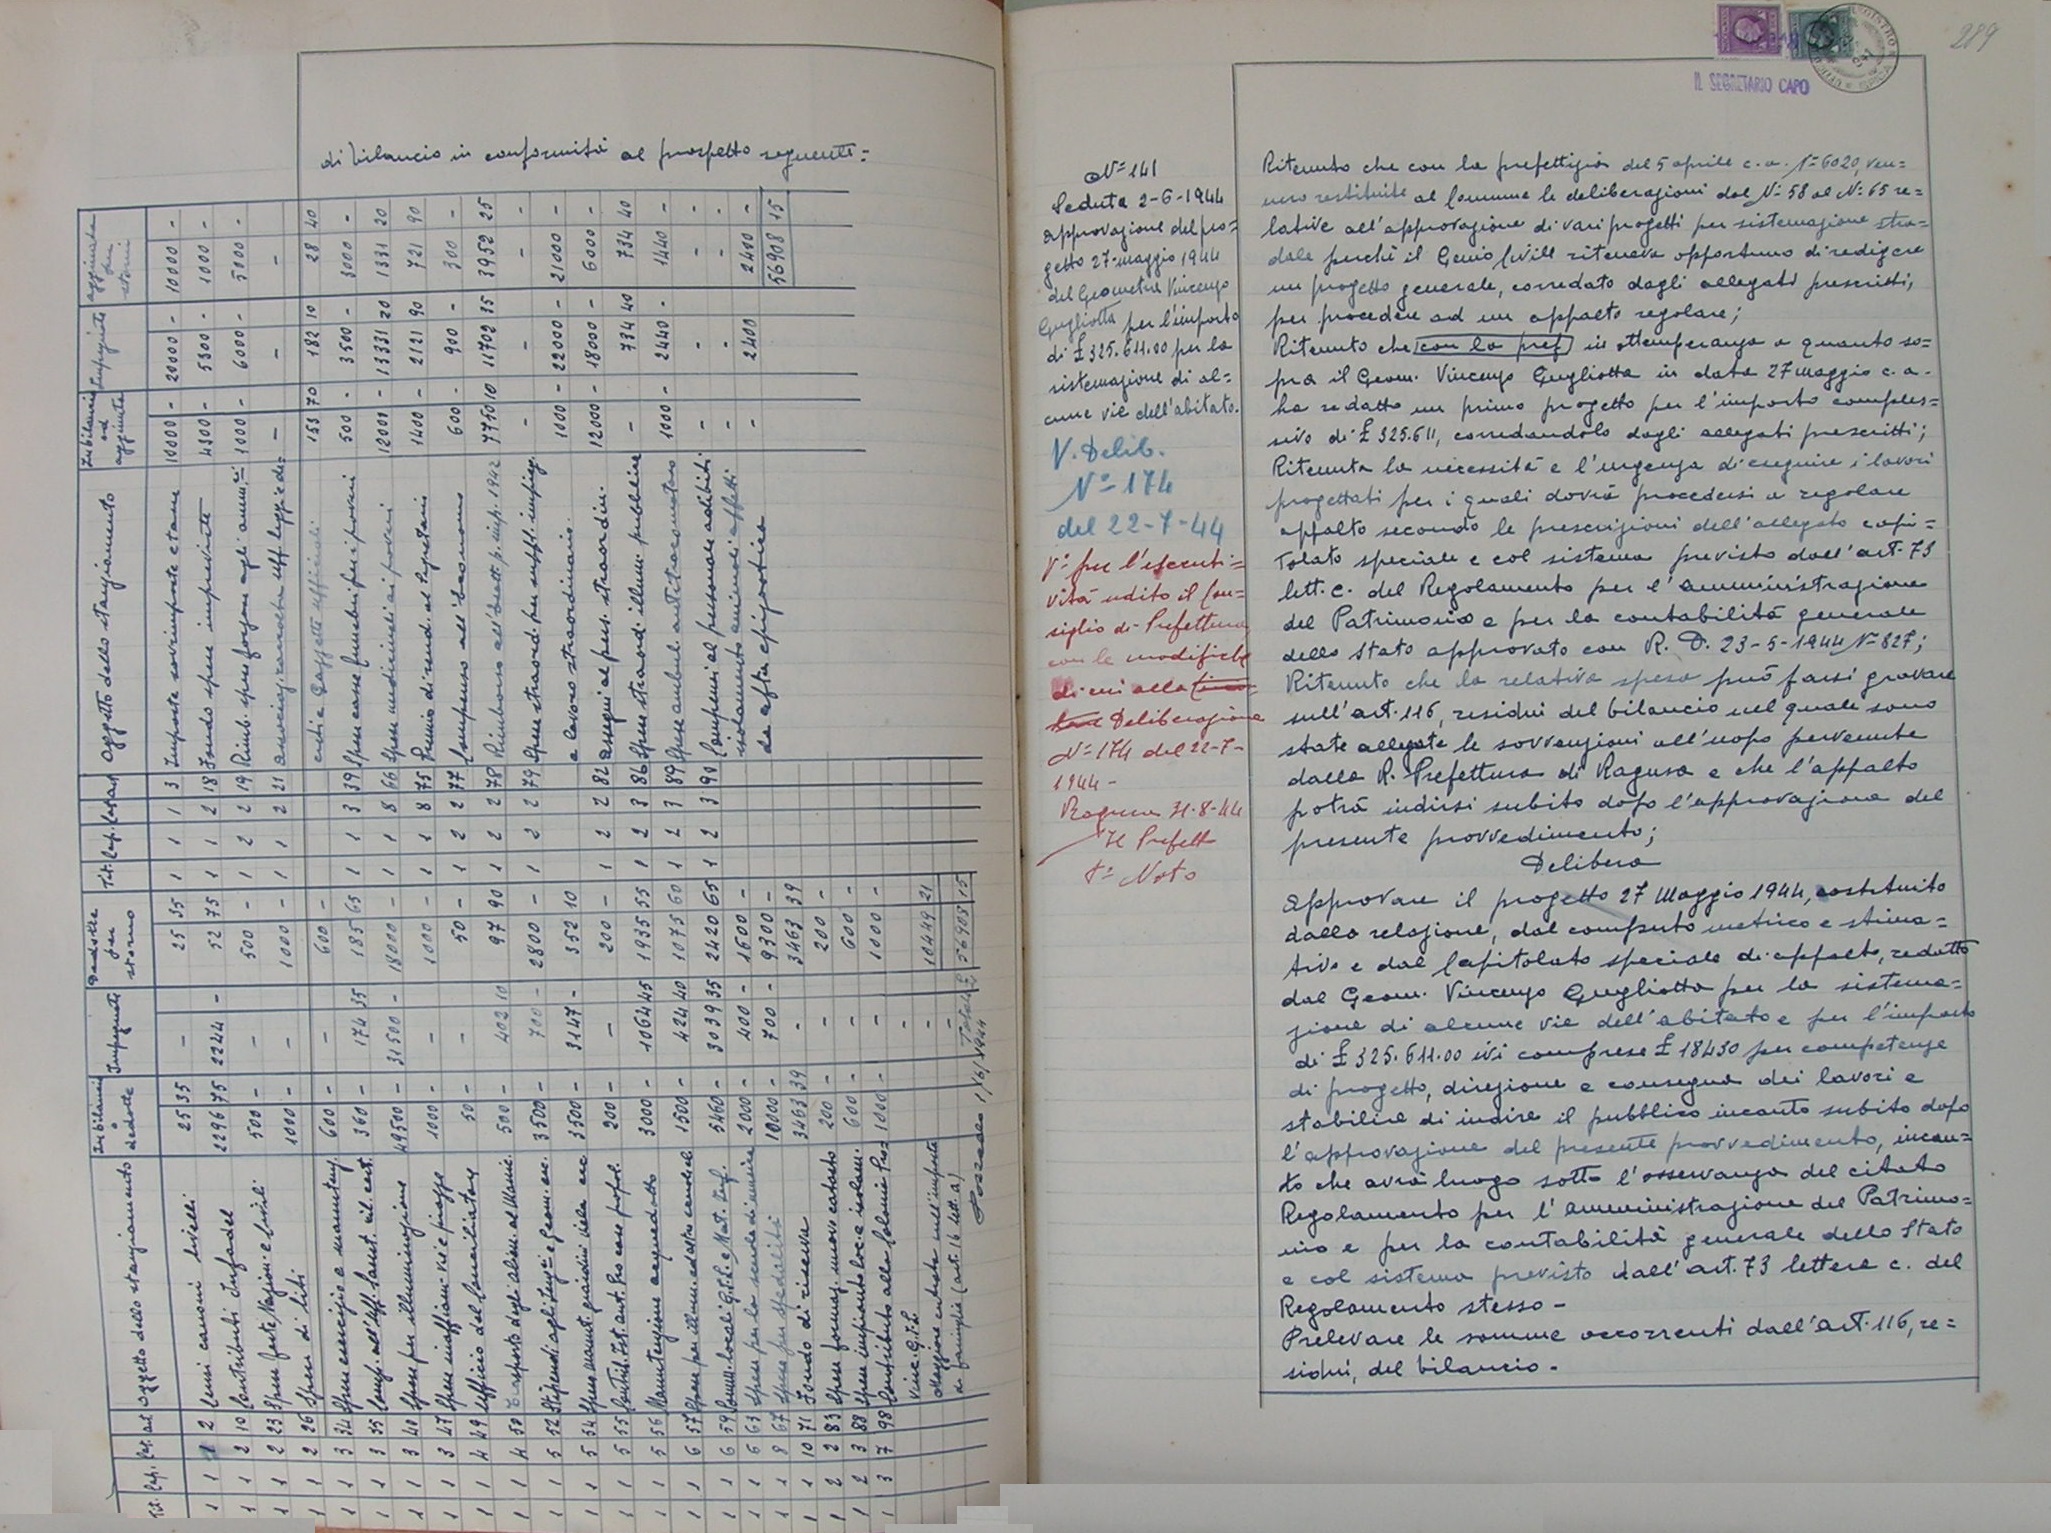 di bilancio in conformità al prospetto seguente:=
Tit. Cap. Cat. Art. Oggetto dello stanziamento In bilancio o dedotte Impegnate Dedotte per storno
1 1 1 2 Censi canoni livelli 25 35 - 25 35
1 1 2 10 Contributi Infadel 2296 75 2244 - 52 75
1 1 2 23 500 - - 500 -
1 1 2 26 Spese di liti 1000 - - 1000 -
1 1 3 34 Spese esercizio e manutenz. 600 - - 600 -
1 1 3 35 360 - 174 35 185 65
1 1 3 40 Spese per illuminazione 49500 - 31500 - 18000 -
1 1 3 47 Spese innaffiam. vie e piazze 1000 - - 1000 -
1 1 4 49 Ufficio del Conciliatore 50 - - 50 -
1 1 4 50 Trasporto degli alien. al Manic. 500 - 402 10 97 90
1 1 5 52 3500 - 700 - 2800 -
1 1 5 54 3500 - 3147 - 352 10
1 1 5 55 200 - - 200 -
1 1 5 56 Manutenzione acquedotto 3000 - 1064 45 1935 55
1 1 6 57 1500 - 424 40 1075 60
1 1 6 59 5460 - 3039 35 2420 65
1 1 6 63 2000 - 400 - 1600 -
1 1 8 67 Spese per spedalità 10000 - 700 - 9300 -
1 1 10 71 Fondo di riserva 3463 39 - 3463 39
1 2 2 83 200 - - 200 -
1 2 3 88 600 - - 600 -
1 3 7 98 Contributo alla Colonia 1000 - - 1000 -
Maggiore entrata sull'imposta
di famiglia (art. 16 lett. a) - 10449 21
Totale £ 56908 15
Tit. Cap. Cat. Art. Oggetto dello stanziamento In bilancio od aggiunte Impegnate Aggiunte per storni
1 1 1 3 Imposte sovrimposte e tasse 10000 - 20000 - 10000 -
1 1 2 18 Fondo spese impreviste 4300 - 5300 - 1000 -
1 2 2 19 1000 - 6000 - 5000 -
1 1 2 21 - - -
enti e Gazzette ufficiali 153 70 182 10 28 40
1 1 3 39 Spese casse funebri per i poveri 500 - 3500 - 3000 -
1 1 8 66 Spese medicinali ai poveri 12000 - 13331 20 1331 20
1 1 8 75 Premio di rend. al Segretari 1400 - 2121 90 721 90
1 2 2 77 Compenso all'Economo 600 - 900 - 300 -
1 2 2 78 7750 10 11702 35 3952 25
1 2 2 79 - - -
a lavoro straordinario 1000 - 22000 - 21000 -
1 2 2 82 Assegni al pers. straordin. 12000 - 18000 - 6000 -
1 2 3 86 Spese straord. illum. pubblica - 734 40 734 40
1 2 3 89 Spese ambul. antitracomatoso 1000 - 2440 - 1440 -
1 2 3 90 Compensi al personale adibiti - - -
isolamento animali affetti - - -
da afta epizootica - 2400 2400 -
56908 15
289
IL SEGRETARIO CAPO
N= 141
Seduta 2-6-1944
Approvazione del pro=
getto 27-maggio 1944
del Geometra Vincenzo
Gugliotta per l'importo
di £ 325.611.00 per la
sistemazione di al=
cune vie dell'abitato.
V. Delib.
N= 174
del 22-7-44
V° per l'esecuti=
vità udito il Con=
siglio di Prefettura
con le modifiche
di cui alla
Deliberazione
N= 174 del 22-7-
1944-
Ragusa 31-8-44
Il Prefetto
f° Noto
Ritenuto che con la prefettizia del 5 aprile c.a. N= 6020, ven=
nero restituite al Comune le deliberazioni dal N= 58 al N= 65 re=
lative all'approvazione di vari progetti per sistemazione stra=
dale perchè il Genio Civile riteneva opportuno di redigere
un progetto generale, corredato dagli allegati prescritti,
per procedere ad un appalto regolare;
Ritenuto che (con la pref) in ottemperanza a quanto so=
pra il Geom. Vincenzo Gugliotta in data 27 maggio c.a.
ha redatto un primo progetto per l'importo comples=
sivo di £ 325.611, corredandolo dagli allegati prescritti;
Ritenuta la necessità e l'urgenza di eseguire i lavori
progettati per i quali dovrà procedersi a regolare
appalto secondo le prescrizioni dell'allegato capi=
tolato speciale e col sistema previsto dall'art. 73
lett. c. del Regolamento per l'amministrazione
del Patrimonio e per la contabilità generale
dello Stato approvato con R. D. 23-5-1944 N= 827;
Ritenuto che la relativa spesa può farsi gravare
sull'art. 116, residui del bilancio nel quale sono
state allegate le sovvenzioni all'uopo pervenute
dalla R. Prefettura di Ragusa e che l'appalto
potrà indirsi subito dopo l'approvazione del
presente provvedimento;
Delibera
Approvare il progetto 27 Maggio 1944, costituito
dalla relazione, dal computo metrico e stima=
tivo e dal Capitolato speciale di appalto, redatto
dal Geom. Vincenzo Gugliotta per la sistema=
zione di alcune vie dell'abitato e per l'importo
di £ 325.611.00 ivi comprese £ 18430 per competenze
di progetto, direzione e consegna dei lavori e
stabilire di indire il pubblico incanto subito dopo
l'approvazione del presente provvedimento, incan=
to che avrà luogo sotto l'osservanza del citato
Regolamento per l'amministrazione del Patrimo=
nio e per la contabilità generale dello Stato
e col sistema previsto dall'art. 73 lettera c. del
Regolamento stesso-
Prelevare le somme occorrenti dall'art. 116, re=
sidui, del bilancio-